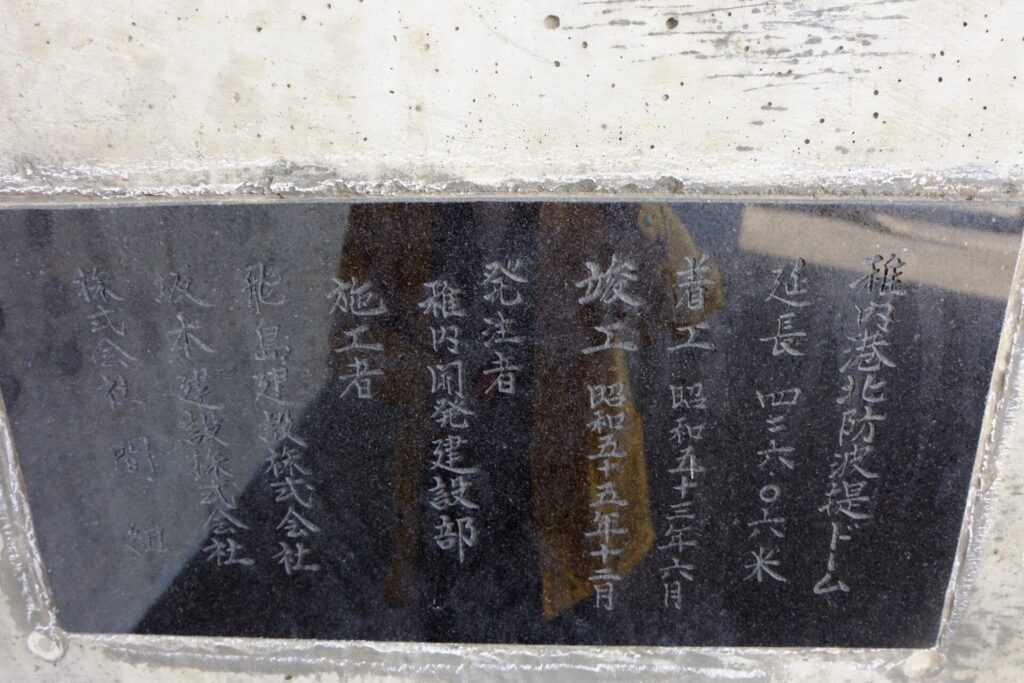 稚内港北防波堤ドーム
延長 四二六.〇六米
着工 昭和五十三年六月
竣工 昭和五十五年十二月
発注者
稚内開発建設部
施工者
飛島建設株式会社
坂本建設株式会社
株式会社 間 組